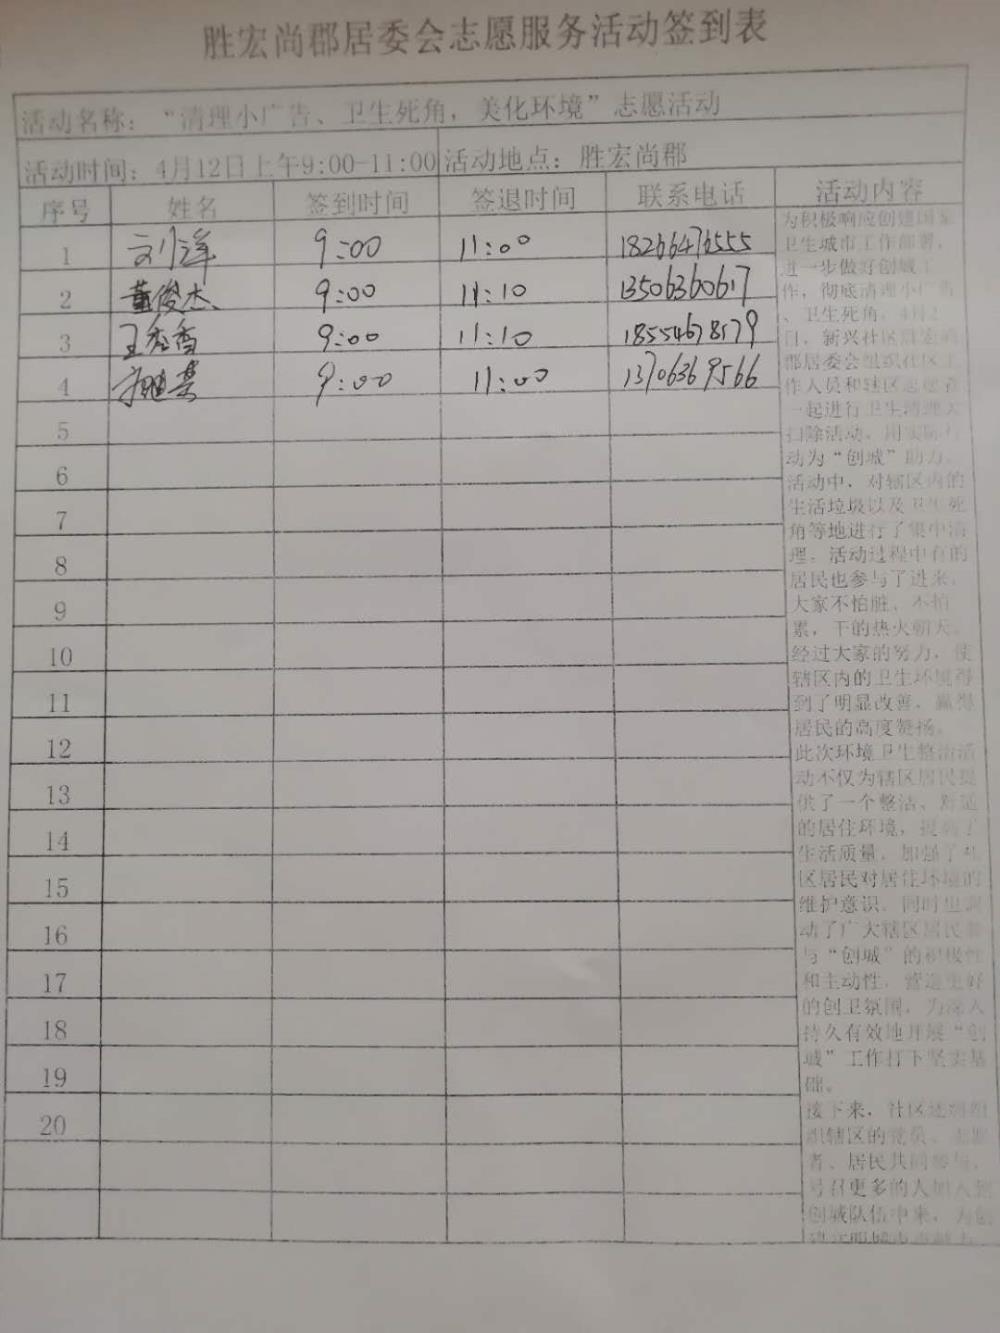 胜宏尚郡居委会志愿服务活动签到表
活动名称：“清理小广告、卫生死角，美化环境”志愿活动
活动时间：4月12日上午9:00-11:00 活动地点：胜宏尚郡
序号 姓名 签到时间 签退时间 联系电话 活动内容
1 刘洋 9:00 11:00 18266476555
2 董俊杰 9:00 11:10 13506360617
3 王秀香 9:00 11:10 18554678579
4 9:00 11:00 13706369566
5
6
7
8
9
10
11
12
13
14
15
16
17
18
19
20
为积极响应创建国家
卫生城市工作部署，
进一步做好创城工
作，彻底清理小广告
、卫生死角，4月2
日，新兴社区胜宏尚
郡居委会组织社区工
作人员和辖区志愿者
一起进行卫生清理大
扫除活动，用实际行
动为“创城”助力。
活动中，对辖区内的
生活垃圾以及卫生死
角等地进行了集中清
理。活动过程中有的
居民也参与了进来，
大家不怕脏、不怕
累，干的热火朝天。
经过大家的努力，使
辖区内的卫生环境得
到了明显改善，赢得
居民的高度赞扬。
此次环境卫生整治活
动不仅为辖区居民提
供了一个整洁、舒适
的居住环境，提高了
生活质量，加强了社
区居民对居住环境的
维护意识，同时也调
动了广大辖区居民参
与“创城”的积极性
和主动性，营造更好
的创卫氛围，为深入
持久有效地开展“创
城”工作打下坚实基
础。
接下来，社区还将组
织辖区的党员、志愿
者、居民共同参与，
号召更多的人加入到
创城队伍中来，为创